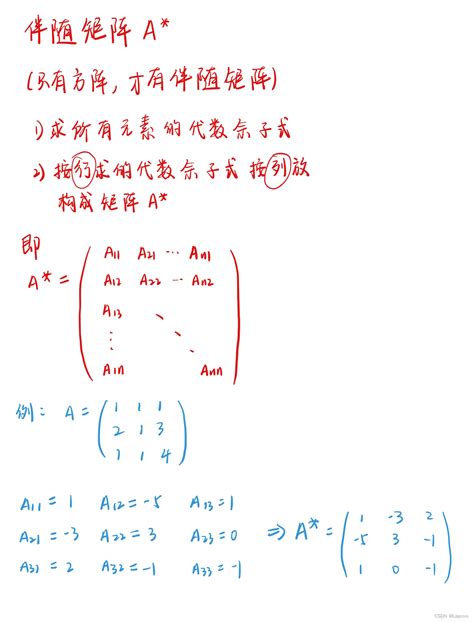 伴随矩阵 A*
(只有方阵，才有伴随矩阵)
1) 求所有元素的代数余子式
2) 按行求的代数余子式 按列放
构成矩阵 A*
即
A* = ( A11 A21 ⋯ An1
A12 A22 ⋯ An2
A13 ⋱
⋮ ⋱
A1n Ann )
例: A = ( 1 1 1
2 1 3
1 1 4 )
A11 = 1 A12 = -5 A13 = 1
A21 = -3 A22 = 3 A23 = 0 ⇒ A* = ( 1 -3 2
A31 = 2 A32 = -1 A33 = -1 -5 3 -1
1 0 -1 )